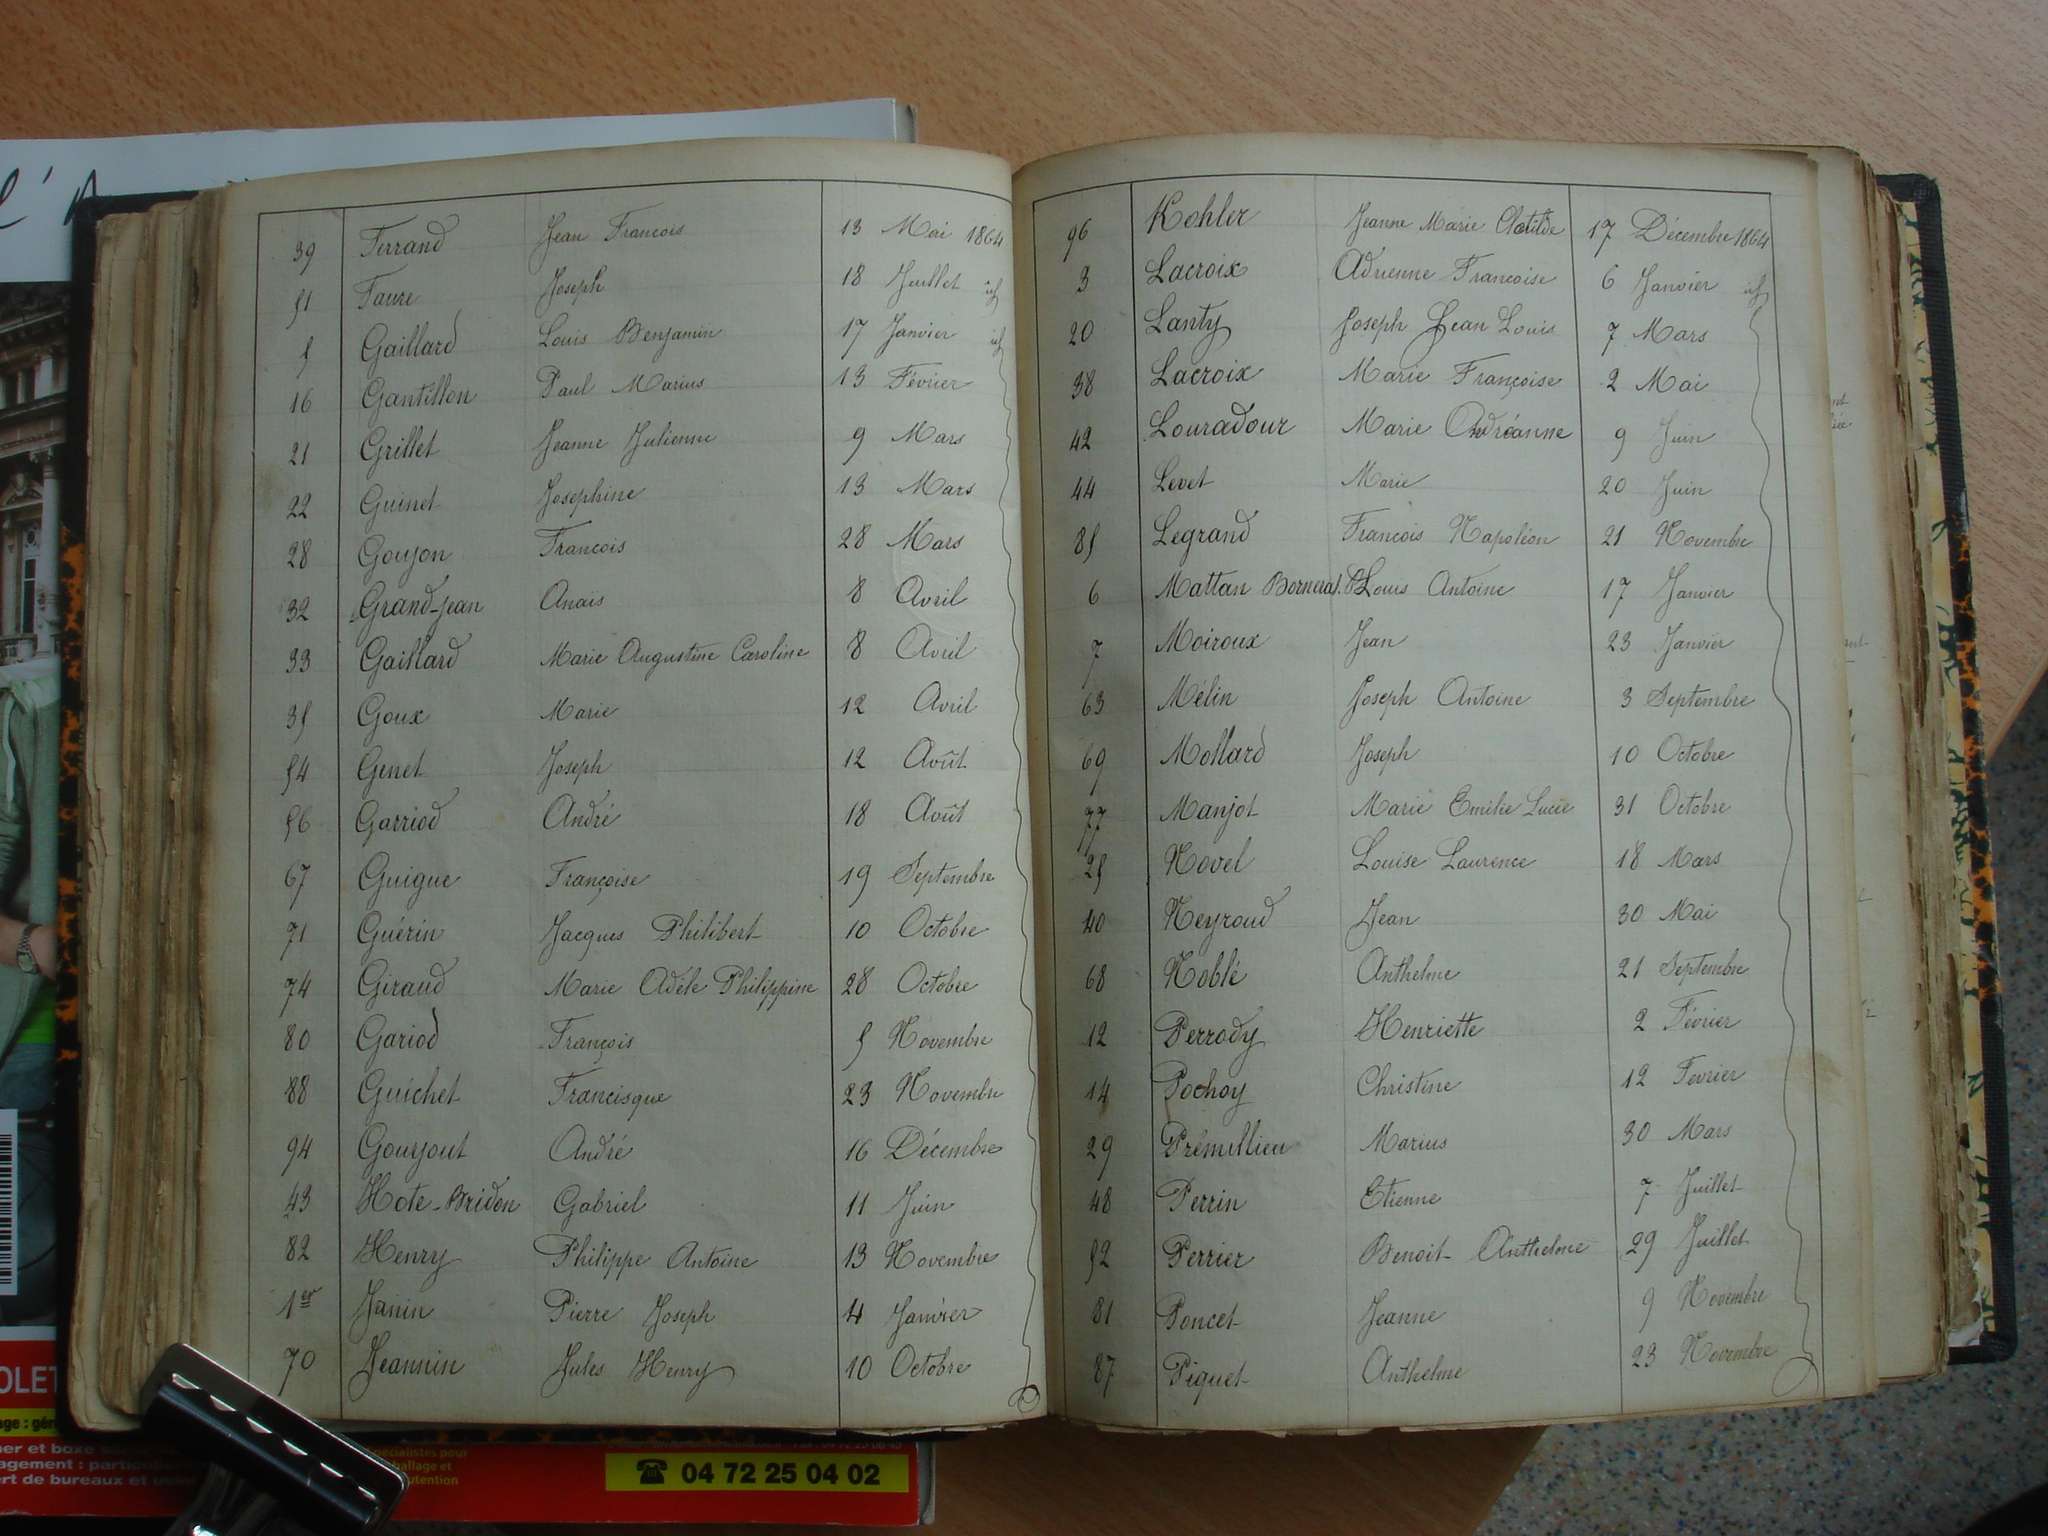 39 Ferrand Jean Francois 13 Mai 1864
51 Faure Joseph 18 Juillet id
5 Gaillard Louis Benjamin 17 Janvier id
16 Gantillon Paul Marius 13 Février
21 Grillet Jeanne Julienne 9 Mars
22 Guinet Josephine 13 Mars
28 Goujon Francois 28 Mars
32 Grand-jean Anais 8 Avril
33 Gaillard Marie Augustine Caroline 8 Avril
35 Goux Marie 12 Avril
54 Genet Joseph 12 Août
56 Garriod André 18 Août
67 Guigue Françoise 19 Septembre
71 Guérin Jacques Philibert 10 Octobre
74 Giraud Marie Adéle Philippine 28 Octobre
80 Gariod François 5 Novembre
88 Guichet Francisque 23 Novembre
94 Gourjout André 16 Décembre
43 Hote-Bridon Gabriel 11 Juin
82 Henry Philippe Antoine 13 Novembre
1er Janin Pierre Joseph 4 Janvier
70 Jeannin Jules Henry 10 Octobre
96 Kohler Jeanne Marie Clotilde 17 Décembre 1864
3 Lacroix Adrienne Francoise 6 Janvier id
20 Lanty Joseph Jean Louis 7 Mars
38 Lacroix Marie Françoise 2 Mai
42 Louradour Marie Andréanne 9 Juin
44 Levet Marie 20 Juin
85 Legrand Francois Napoléon 21 Novembre
6 Mattan Louis Antoine 17 Janvier
7 Moiroux Jean 23 Janvier
63 Mélin Joseph Antoine 3 Septembre
69 Mollard Joseph 10 Octobre
77 Manjot Marie Emilie Lucie 31 Octobre
25 Novel Louise Laurence 18 Mars
40 Neyroud Jean 30 Mai
68 Noblé Anthelme 21 Septembre
12 Perrody Henriette 2 Février
14 Pochoy Christine 12 Fevrier
29 Prémillieu Marius 30 Mars
48 Perrin Etienne 7 Juillet
52 Perrier Benoit Anthelme 29 Juillet
81 Poncet Jeanne 9 Novembre
87 Piquet Anthelme 23 Novembre
OLET
pécialistes pour
ballage et
rt de bureaux et
☎ 04 72 25 04 02